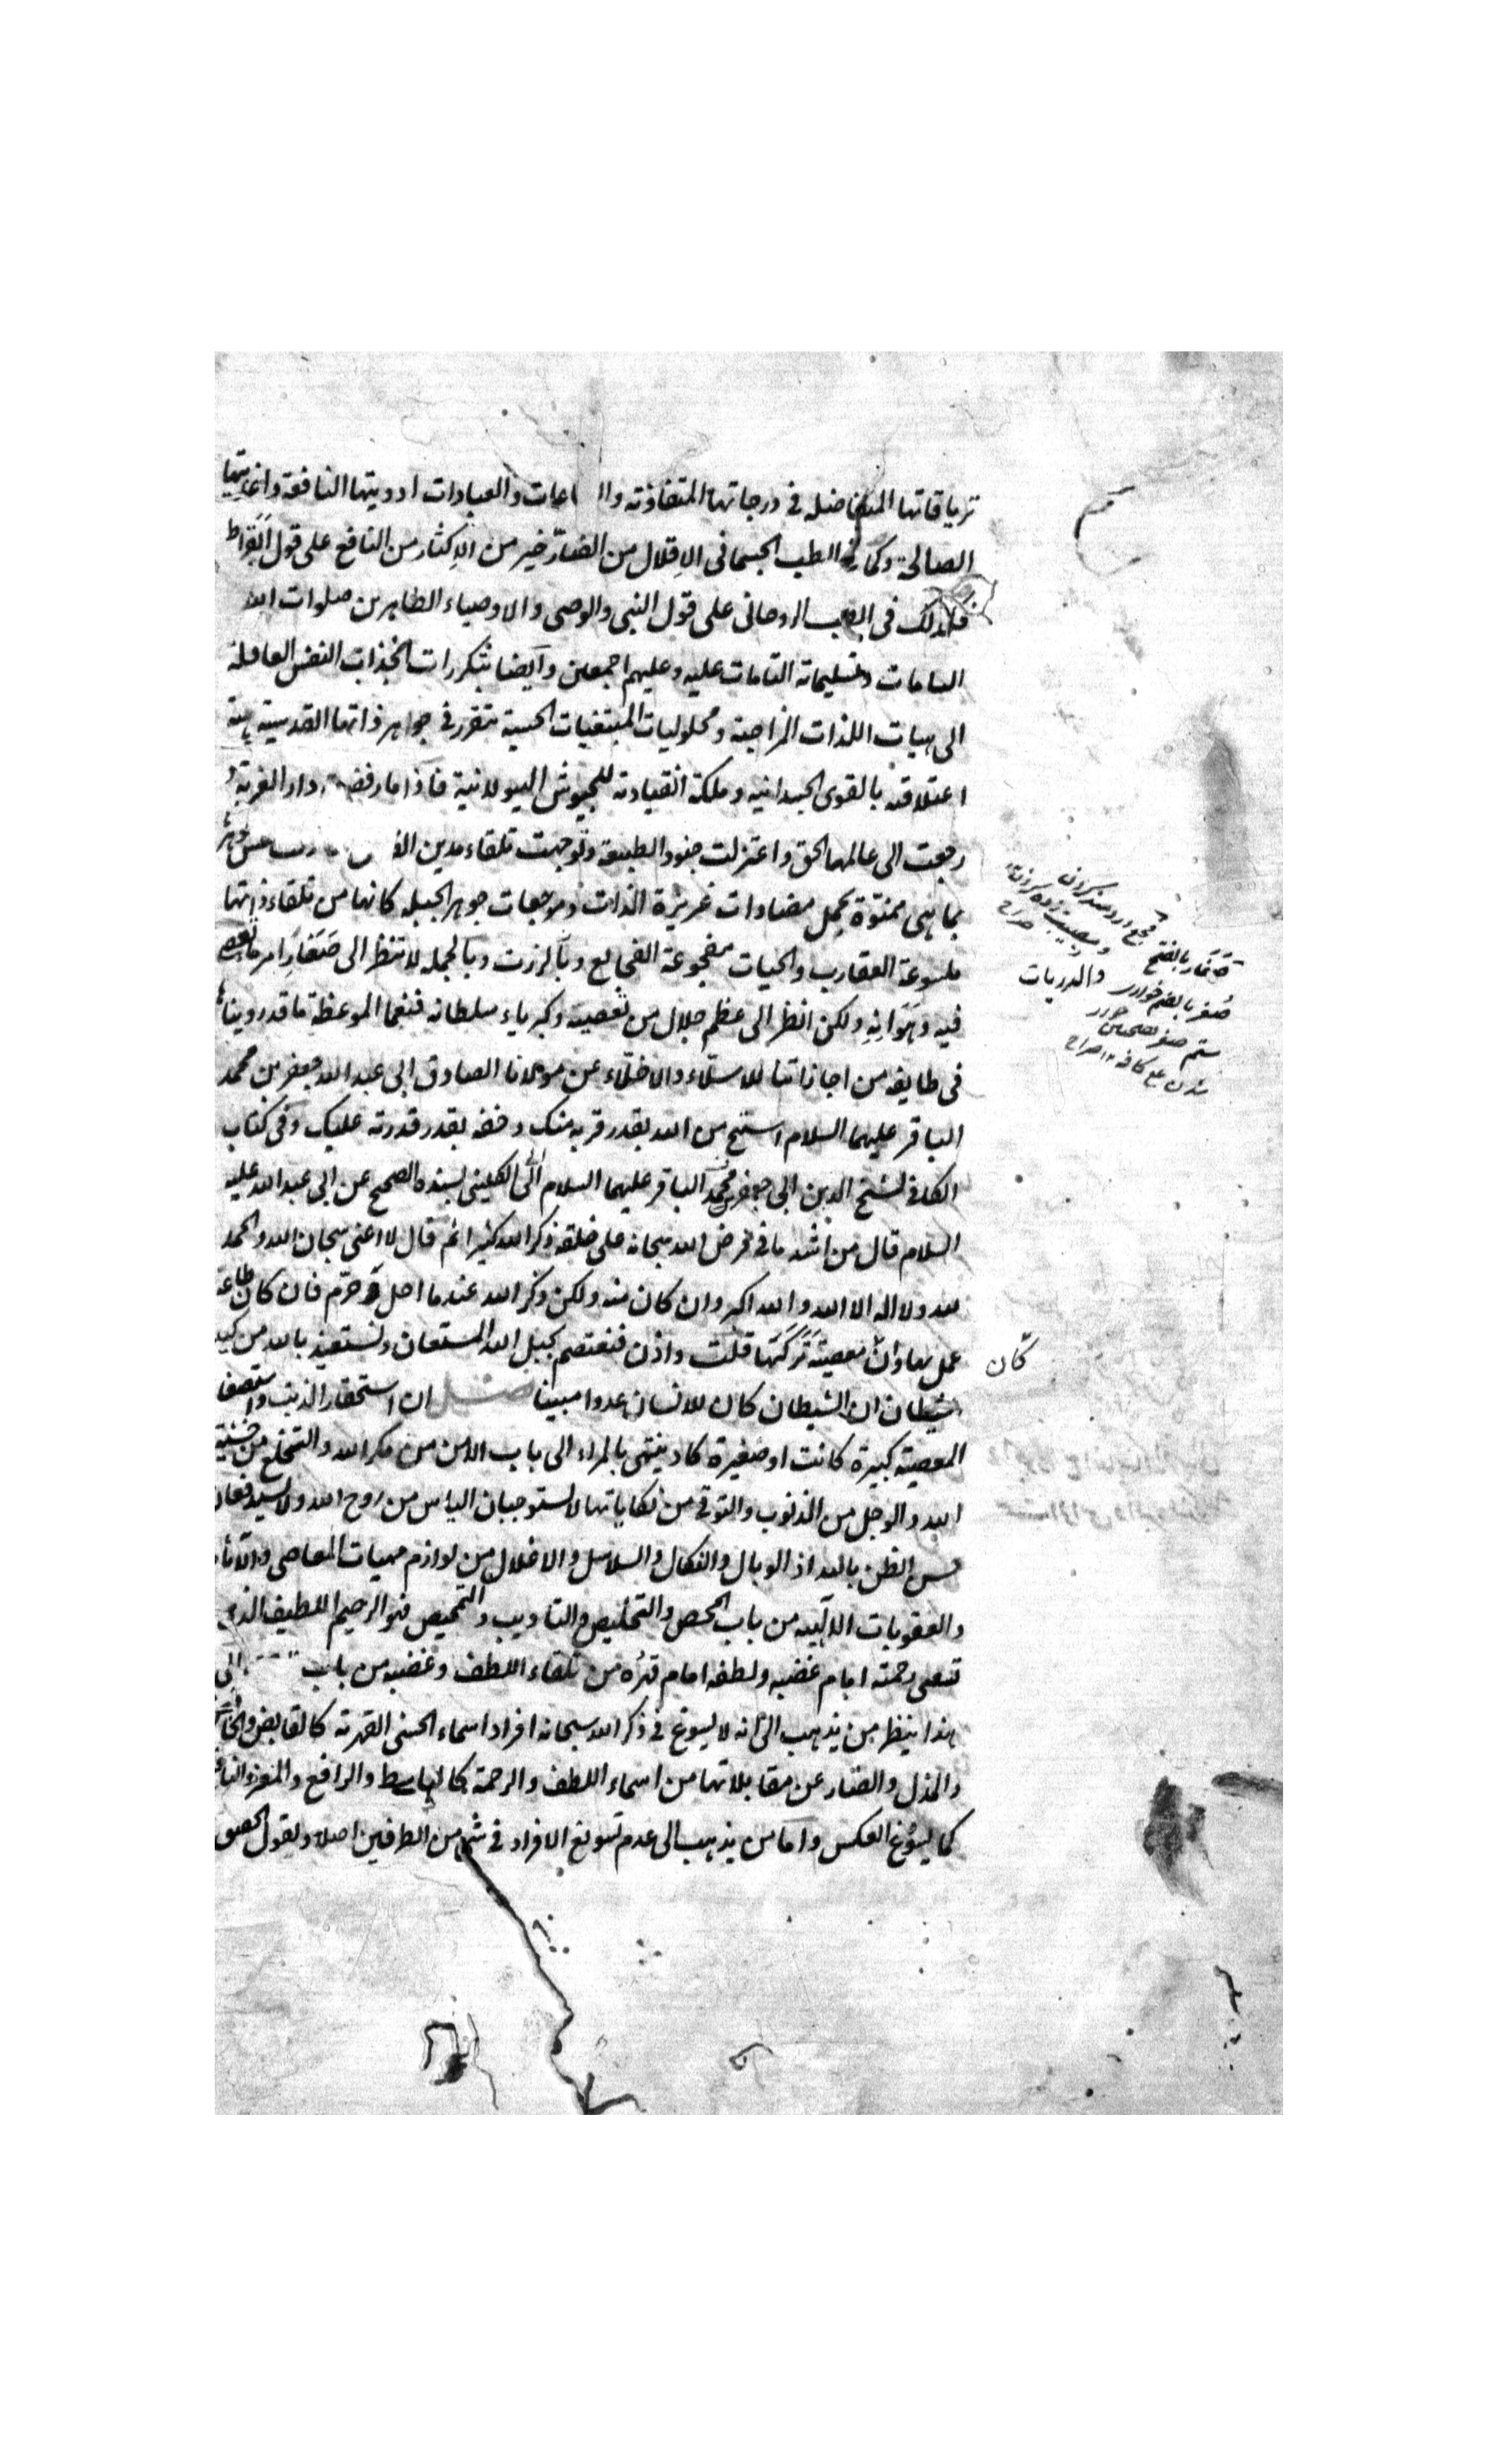 ترياقاتها المتفاضله فى درجاتها المتفاوته وال اعات والعبادات ادويتها النافعة واغذيتها
الصالحة وكما فى الطب الجسمانى الاِقلال من الضارّ خير من الاِكثار من النافع على قول ابقراط
فكذلك فى الطب الروحانى على قول النبى والوصى والاوصياء الطاهرين صلوات الله
التامات وتسليماته التامات عليه وعليهم اجمعين وايضا بتكررات انجذاب النفس العاقلة
الى هيات اللذات المزاجية و المبتغيات الحسية تتقرر فى جواهر ذاتها القدسية هيئة
اعتلاقه بالقوى الجسدانيه وملكة انقيادته للجيوش الهيولانية فاذا ما رفضت دار الغربة
رجعت الى عالمها الحق واعتزلت جنود الطبيعة وتوجهت تلقاء مدين
بما هى ممنوّة بحمل مضادات غريزة الذات وموجعات جوهر الجبله كانها من تلقاء ذاتها
ملسوعة العقارب والحيات مفجوعة الفجايع وبالجمله لا تنظر الى صَغَارِ امر ما تعصى
فيه وهَوَانِهِ ولكن انظر الى عظم جلال من تعصيه وكبرياء سلطانه فنعما الموعظة ما قد روينا
فى طايفة من اجازاتنا عن مولانا الصادق ابى عبد الله جعفر بن محمد
الباقر عليهما السلام استح من الله بقدر قربه منك وخفه بقدر قدرته عليك وفى كتاب
الكافى لشيخ الدين ابى جعفر محمد الكلينى بسنده الصحيح عن ابى عبد الله عليه
السلام قال من اشد ما فرض الله سبحانه على خلقه ذكر الله كثيرا ثم قال لا اعنى سبحان الله والحمد
لله ولا اله الا الله والله اكبر وان كان منه ولكن ذكر الله عند ما احل وحرّم فان كان طاعة
عمل بها وان معصيةً تَرَكَها قلت واذن فنعتصم بحبل الله المستعان ونستعيذ بالله من كيد
الشيطان ان الشيطان كان للانسان عدوا مبينا ان استحقار الذنب واستصغار
المعصية كبيرة كانت او صغيرة كاد ينتهى بالمراء الى باب الامن من مكر الله والتخلع من خشية
الله والوجل من الذنوب والتوقى من نكاياتها لا يستوجبان الياس من روح الله ولا يدافعان
حسن الظن بالله اذ الوبال والنكال والسلاسل والاغلال من لوازم مهيات المعاصى والاثام
والعقوبات الالٓهيه من باب والتخليص والتاديب والتمحيص فهو الرحيم اللطيف الذى
تسعى رحمته امام غضبه ولطفه امام قهره من تلقاء اللطف وغضبه من باب الى
هذا ينظر من يذهب الى انه لا يسوغ فى ذكر الله سبحانه افراد اسماء الحسنى القهرية كالقابض والخافض
والمذل والضار عن مقابلاتها من اسماء اللطف والرحمة كالباسط والرافع والمعز والنافع
كما يسوّغ العكس واما من يذهب الى عدم تسويغ الافراد فى شئ من الطرفين اصلا ويقول
صَغَار بالفتح
صُغر بالضم خوارى
ستم
شدن صراح
كان